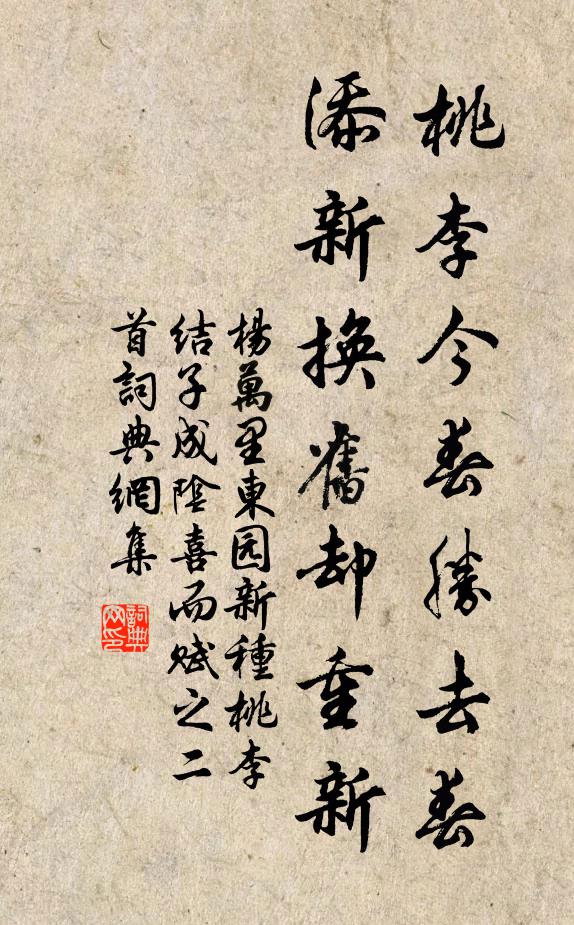 桃李今春勝去春
添新換舊却重新
楊萬里東园新種桃李
结子成陰喜而赋之二
首詞典網集
詞典
网印